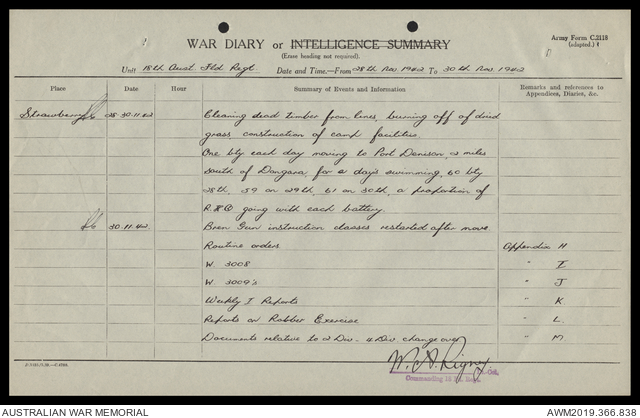 Army Form C.2118
(adapted.)
WAR DIARY or INTELLIGENCE SUMMARY
(Erase heading not required).
Unit 18th Aust. Fld Regt. Date and Time—From 28th Nov 1942 To 30th Nov 1942
Place Date Hour Summary of Events and Information Remarks and references to Appendices, Diaries, &c.
Strawberry 28-30.11.42 Cleaning dead timber from lines, burning off of dried
grass, construction of camp facilities.
One bty each day moving to Port Denison, 2 miles
south of Dongara, for a day's swimming, 60 bty
28th, 59 on 29th, 61 on 30th, a proportion of
R.H.Q going with each battery.
30.11.42 Bren Gun instruction classes restarted after move
Routine orders Appendix H
W. 3008 " I
W. 3009's " J
Weekly I Reports " K
Reports on Robber Exercise " L.
Documents relative to 2 Div - 4 Div change over " M
W. A. Rigney
Commanding 18
AUSTRALIAN WAR MEMORIAL AWM2019.366.838